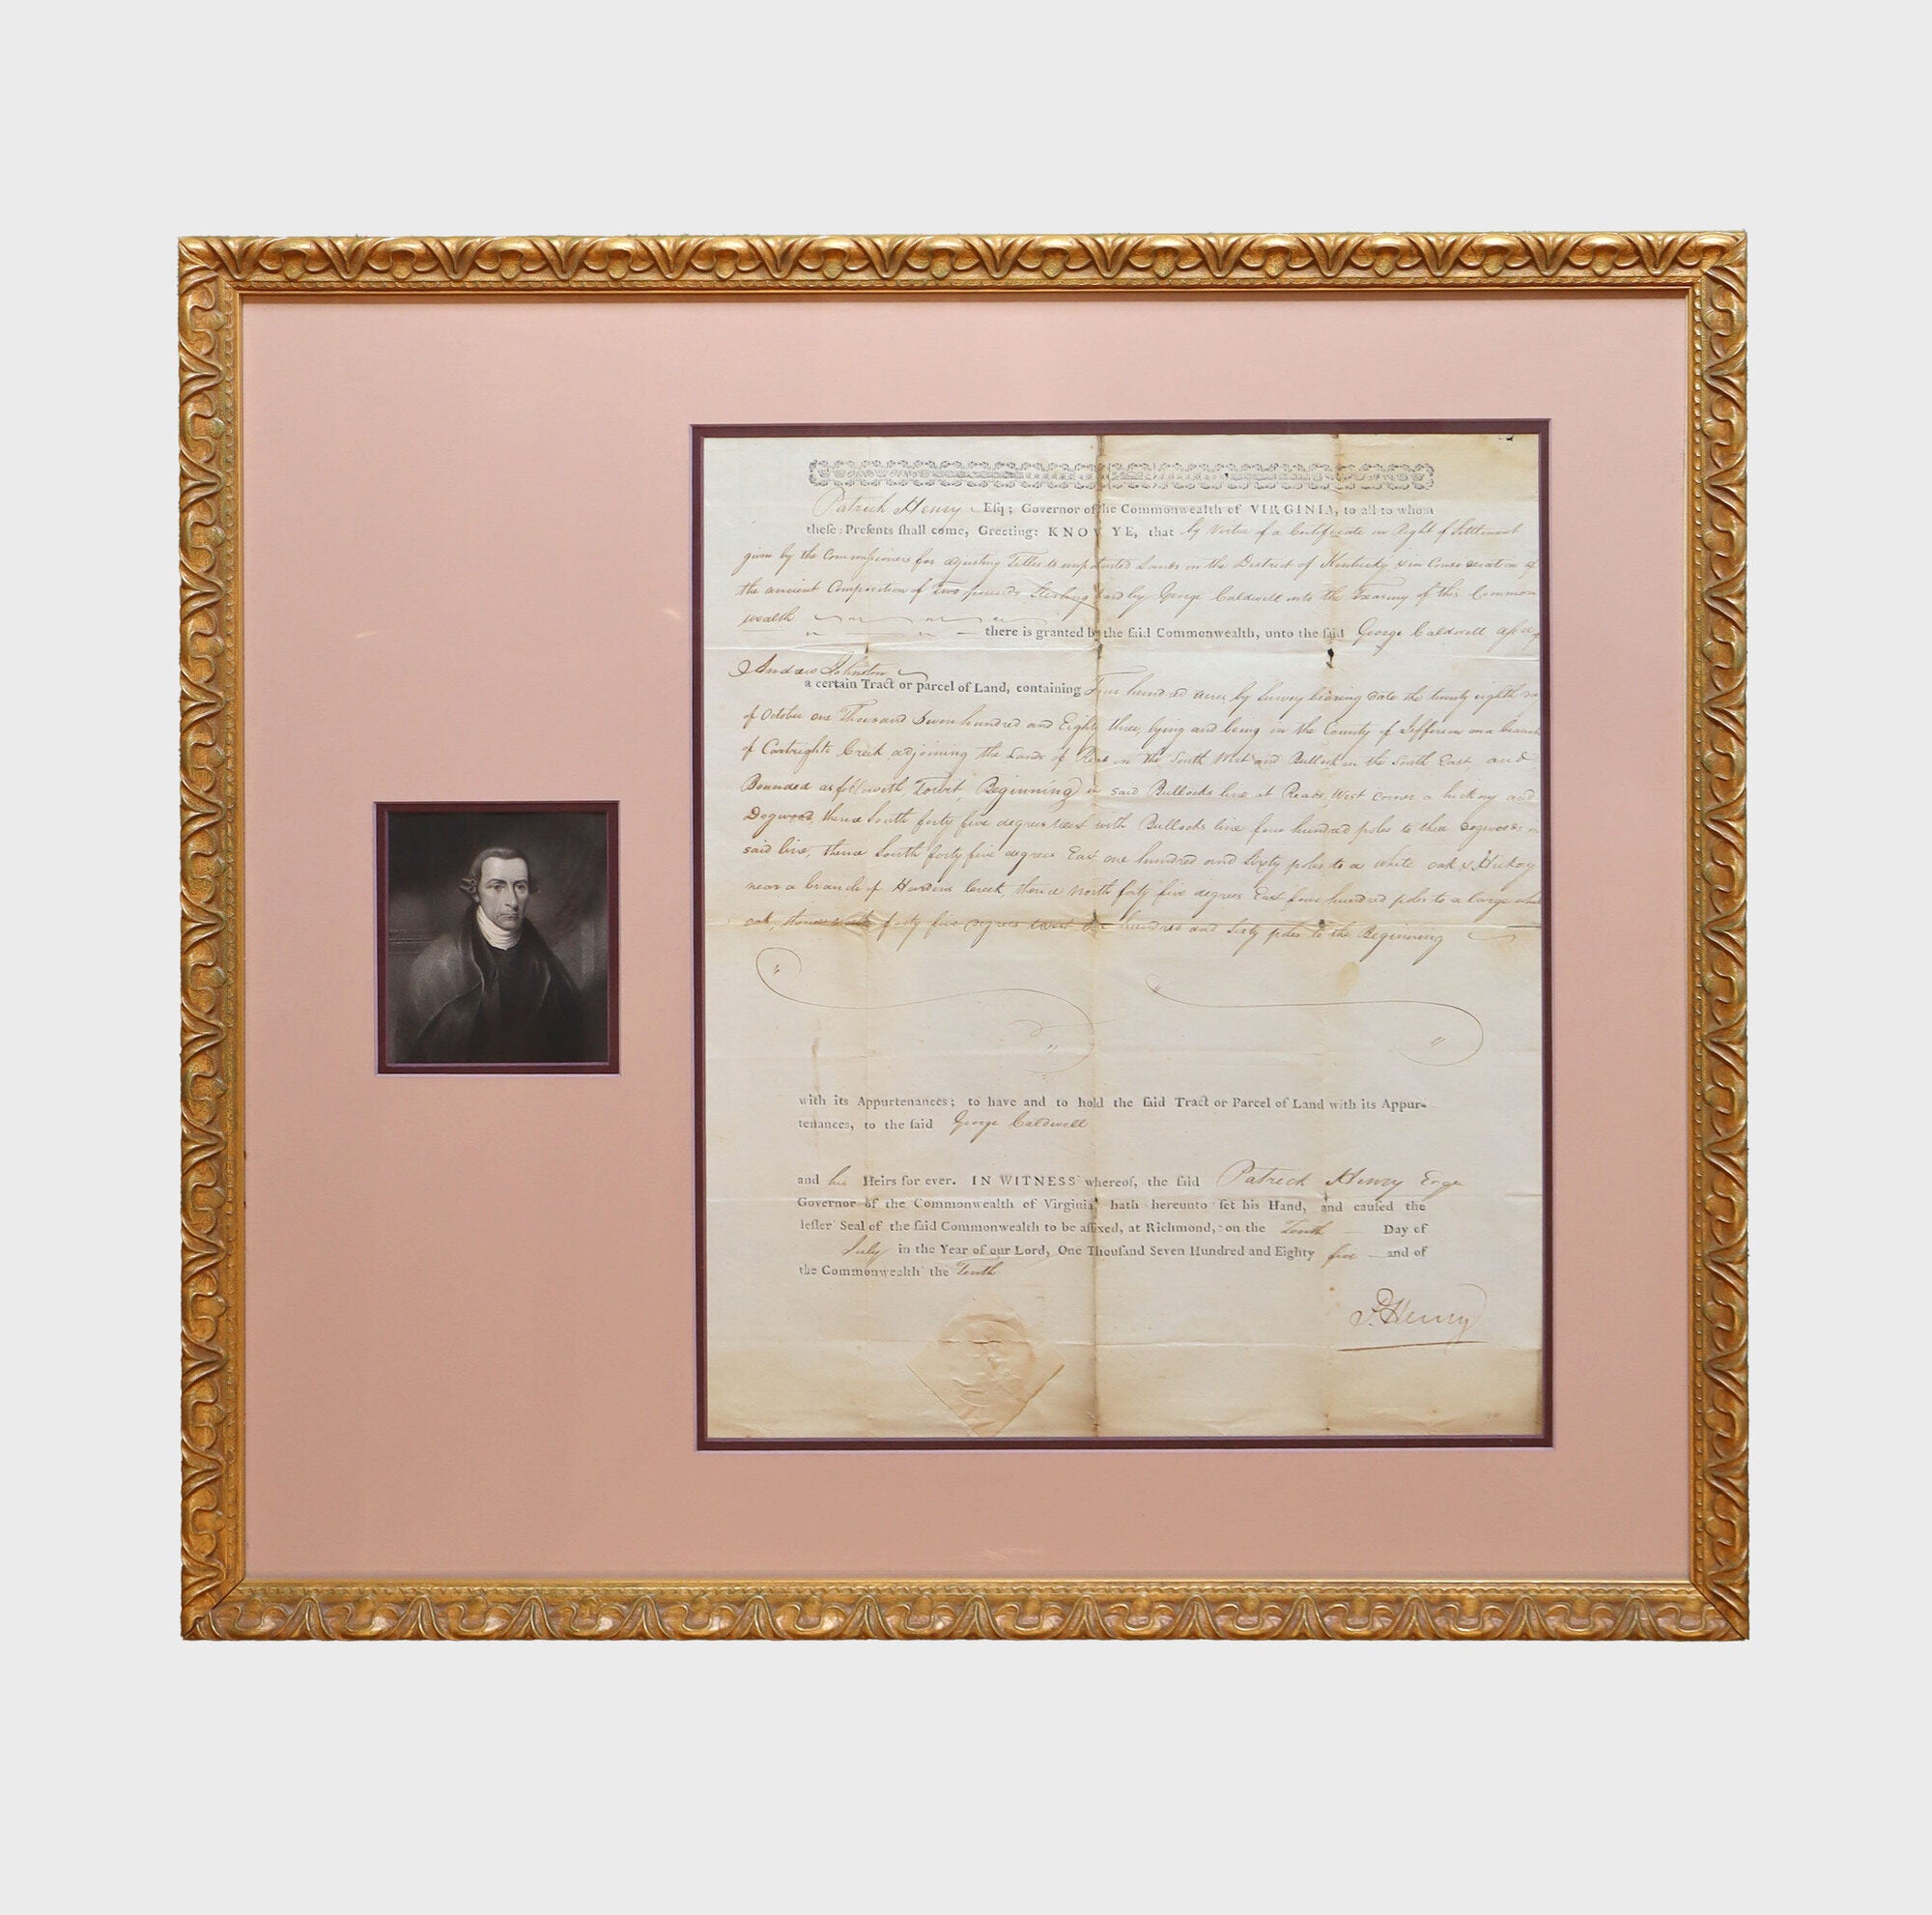 Patrick Henry Eſq; Governor of the Commonwealth of VIRGINIA, to all to whom
theſe Preſents ſhall come, Greeting: KNOW YE, that by Virtue of a Certificate in Right of Settlement
given by the Commissioners for adjusting Titles to unpatented Lands in the District of Kentucky & in Consideration of
the ancient Composition of Two pounds Sterling paid by George Caldwell into the Treasury of this Common
wealth
there is granted by the ſaid Commonwealth, unto the ſaid George Caldwell
Andrew Johnston
a certain Tract or parcel of Land, containing Four hundred acres by Survey bearing date the twenty eighth day
of October one Thousand Seven hundred and Eighty three, lying and being in the County of Jefferson on a branch
of Cartrights Creek adjoining the Lands of on the South West and Bullock on the South East and
Bounded as followeth Towit, Beginning in said Bullocks line at West corner a hickory and
Dogwood, thence South forty five degrees West with Bullocks line four hundred poles to dogwoods in
said line, thence South forty five degrees East one hundred and Sixty poles to a white oak & Hickory
near a branch of Hardins Creek, thence North forty five degrees East four hundred poles to a large white
oak, thence forty five degrees West one hundred and Sixty poles to the Beginning
with its Appurtenances; to have and to hold the ſaid Tract or Parcel of Land with its Appur-
tenances, to the ſaid George Caldwell
and his Heirs for ever. IN WITNESS whereof, the ſaid Patrick Henry Esqr
Governor of the Commonwealth of Virginia hath hereunto ſet his Hand, and cauſed the
leſſer Seal of the ſaid Commonwealth to be affixed, at Richmond, on the Tenth Day of
July in the Year of our Lord, One Thouſand Seven Hundred and Eighty five and of
the Commonwealth the Tenth
P. Henry